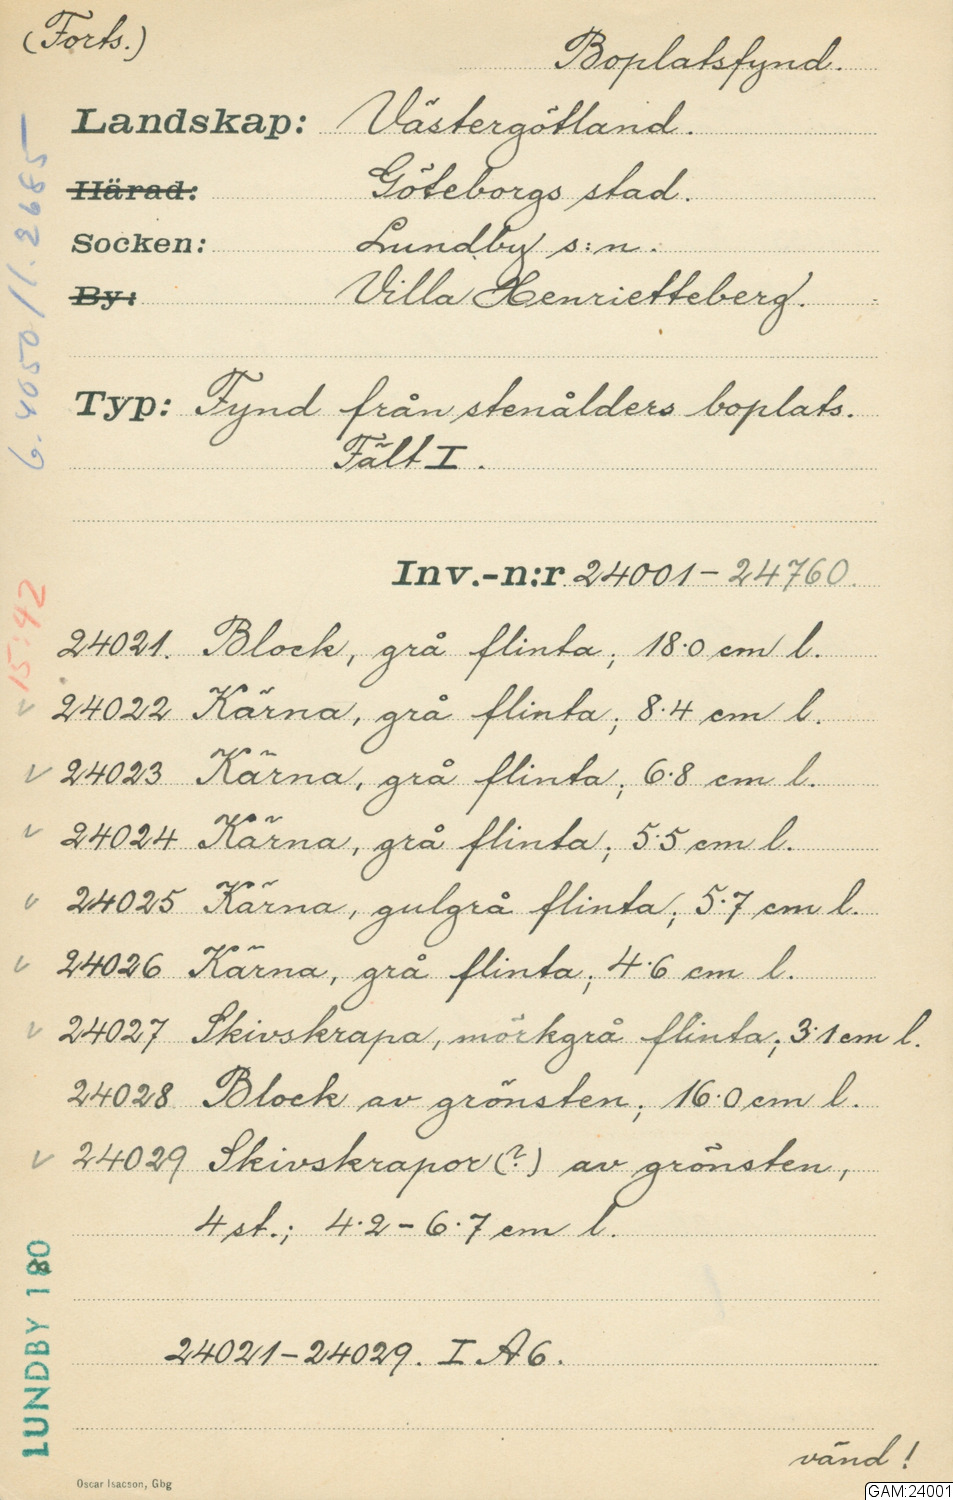 (Forts.)
Boplatsfynd.
Landskap: Västergötland.
Härad: Göteborgs stad.
Socken: Lundby s:n.
By: Villa Henrietteberg.
Typ: Fynd från stenålders boplats.
Fält I.
Inv.-n:r 24001-24760.
24021. Block, grå flinta; 18.0 cm l.
v 24022 Kärna, grå flinta; 8.4 cm l.
v 24023 Kärna, grå flinta; 6.8 cm l.
v 24024 Kärna, grå flinta; 5.5 cm l.
v 24025 Kärna, gulgrå flinta; 5.7 cm l.
v 24026 Kärna, grå flinta; 4.6 cm l.
v 24027 Skivskrapa, mörkgrå flinta; 3.1 cm l.
24028 Block av grönsten; 16.0 cm l.
v 24029 Skivskrapor (?) av grönsten,
4 st.; 4.2-6.7 cm l.
24021-24029. I A6.
vänd!
Oscar Isacson, Gbg
GAM:24001
15:42
LUNDBY 180